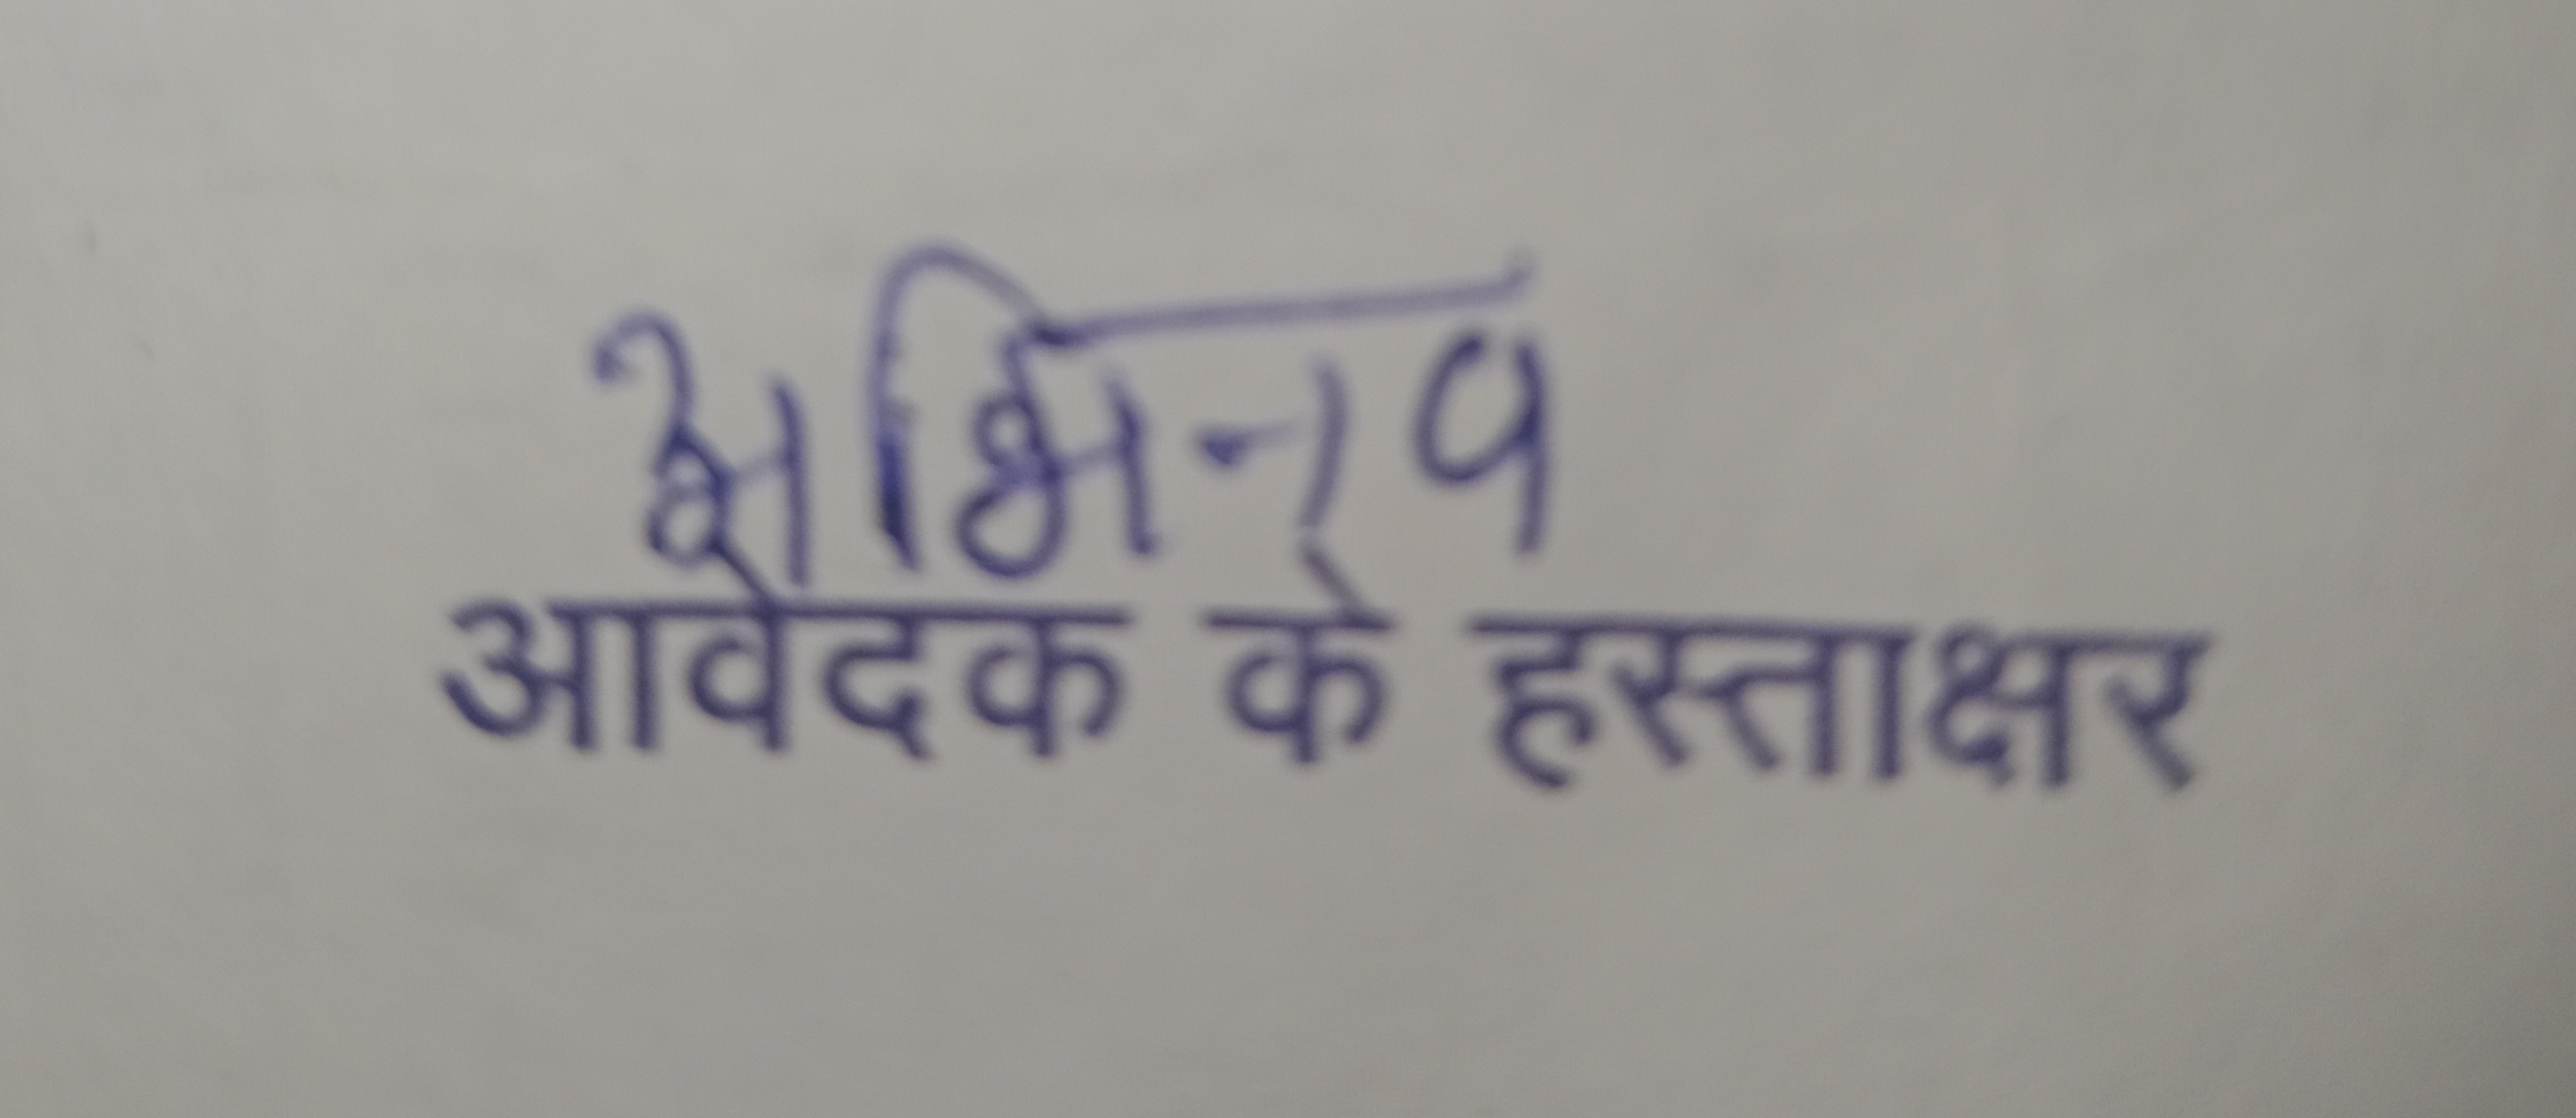 अभिनव
आवेदक के हस्ताक्षर